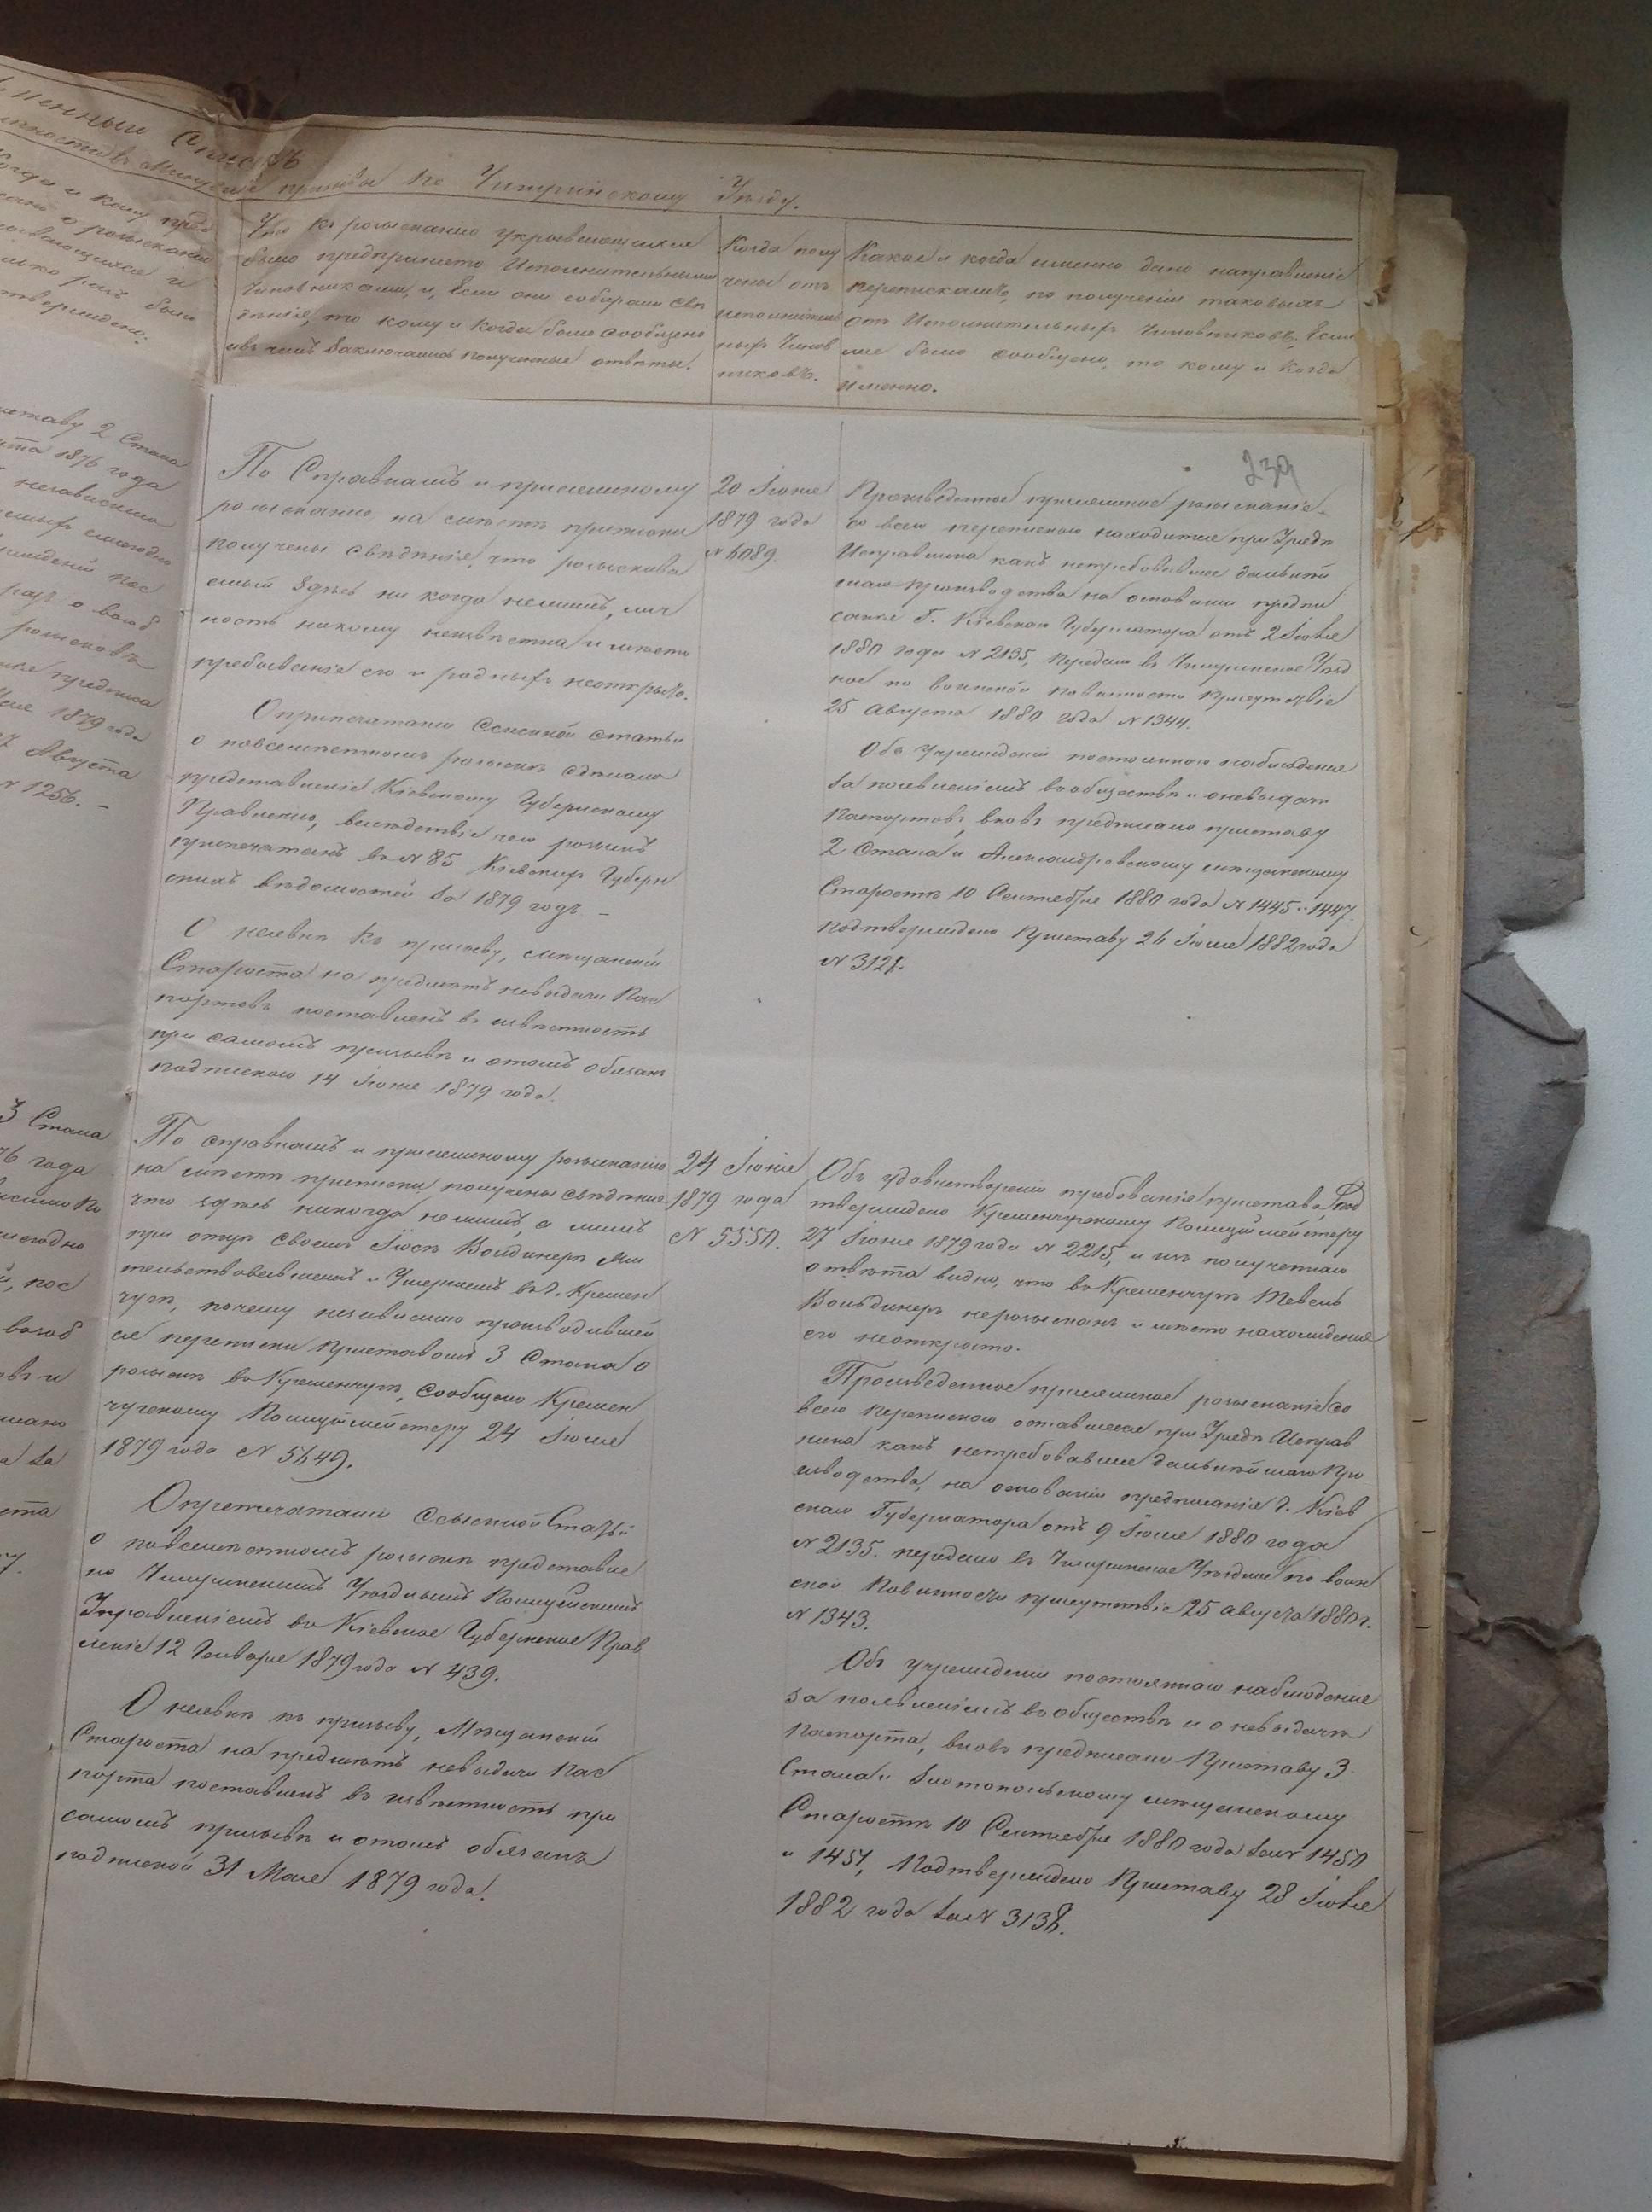 Именный Списокъ
по Чигиринскому Уѣзду.
Когда и кому пред
писано о розысканіи
укрывающихся и
сколько разъ было
подтверждено.
Что къ розысканію укрывающихся
было предпринято Исполнительными
Чиновниками, и, если они собирали свѣ
дѣнія, то кому и когда было сообщено
и въ чемъ заключались полученные отвѣты.
Когда полу
чены отъ
исполнитель
ныхъ Чинов
никовъ.
Какое и когда именно дано направленіе
перепискамъ, по полученіи таковыхъ
отъ Исполнительныхъ Чиновниковъ. Если
же было сообщено, то кому и когда
именно.
239
Приставу 2 Стана
1876 года
независимо
1879 года
Августа
№ 1256. –
3 Стана
76 года
По Справкамъ и присяжному
розысканію на мѣстѣ приписки
получены свѣдѣнія, что розыскива
емый здѣсь ни когда нежилъ, лич
ность никому неизвѣстна и мѣсто
пребываніе его и родныхъ неоткрыто.
О припечатаніи Ссыскной статьи
о повсемѣстномъ розыскѣ сдѣлано
представленіе Кіевскому Губернскому
Правленію, вслѣдствіе чего розыскъ
припечатанъ въ № 85 Кіевскихъ Губерн
скихъ вѣдомостей за 1879 годъ –
О неявкѣ къ призыву, мѣщанскій
Староста на предметъ невыдачи Пас
портовъ поставленъ въ извѣстность
при самомъ призывѣ и отомъ обязанъ
подпискою 14 Іюня 1879 года.
20 Іюня
1879 года
№ 6089.
Произведенное присяжное розысканіе
со всею перепискою находится при Уѣздн
Исправника какъ нетребовавшее дальнѣй
шаго производства на основаніи предпи
санія Г. Кіевскаго Губернатора отъ 2 Іюля
1880 года № 2135, передано въ Чигиринское Уѣзд
ное по воинской повинности присутствіе
25 Августа 1880 года № 1344.
Объ учрежденіи постояннаго наблюденія
за появленіемъ въ обществѣ и о невыдачѣ
Паспортовъ, вновь предписано приставу
2 Стана и Александровскому мѣщанскому
Старостѣ 10 Сентября 1880 года № 1445 и 1447.
подтверждено Приставу 26 Іюля 1882 года
№ 3121.
По справкамъ и присяжному розысканію
на мѣстѣ приписки получены свѣдѣнія
что здѣсь никогда не жилъ, а жилъ
при отцѣ своемъ Іосѣ Войдинеръ жи
тельствовавшемъ и Умершемъ въ г. Кремен
чугѣ, почему независимо производившей
ся переписки Приставомъ 3 Стана о
розыскѣ въ Кременчугѣ, сообщено Кремен
чугскому Полиціймейстеру 24 Іюня
1879 года № 5549.
О припечатаніи Ссыскной Статьи
о повсемѣстномъ розыскѣ представле
но Чигиринскимъ Уѣзднымъ Полицейскимъ
Управленіемъ въ Кіевское Губернское Прав
леніе 12 Января 1879 года № 439.
О неявкѣ къ призыву, Мѣщанскій
Староста на предметъ невыдачи Пас
порта поставленъ въ извѣстность при
самомъ призывѣ и отомъ обязанъ
подпиской 31 Мая 1879 года.
24 Іюня
1879 года
№ 5550.
Объ удовлетвореніи требованія пристава, Под
тверждено Кременчугскому Полиціймейстеру
27 Іюня 1879 года № 2215, и изъ полученнаго
отвѣта видно, что въ Кременчугѣ Тевель
Вольдинеръ нерозысканъ и мѣсто нахожденіе
его неоткрыто.
Произведенное присяжное розысканіе со
всею перепискою оставшееся при Уѣздн Исправ
ника какъ нетребовавшее дальнѣйшаго Про
изводства, на основаніи предписанія Г. Кіев
скаго Губернатора отъ 9 Іюля 1880 года
№ 2135. передано въ Чигиринское Уѣздное по воин
ской Повинности присутствіе 25 Августа 1880 г.
№ 1343.
Объ учрежденіи постояннаго наблюденія
за появленіемъ въ обществѣ и о невыдачѣ
паспорта, вновь предписано Приставу 3
Стана и Златопольскому мѣщанскому
Старостѣ 10 Сентября 1880 года за № 1450
и 1451, Подтверждено Приставу 28 Іюля
1882 года за № 3138.